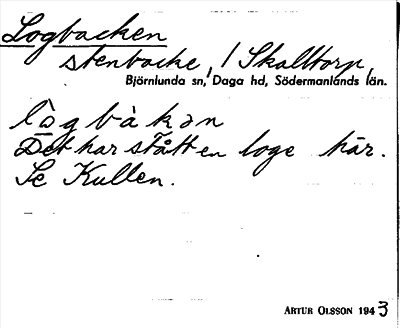 Logbacken
stenbacke, / Skalltorp,
Björnlunda sn, Daga hd, Södermanlands län.
lògbàkən
Det har stått en loge här.
Se Kullen.
ARTUR OLSSON 1943